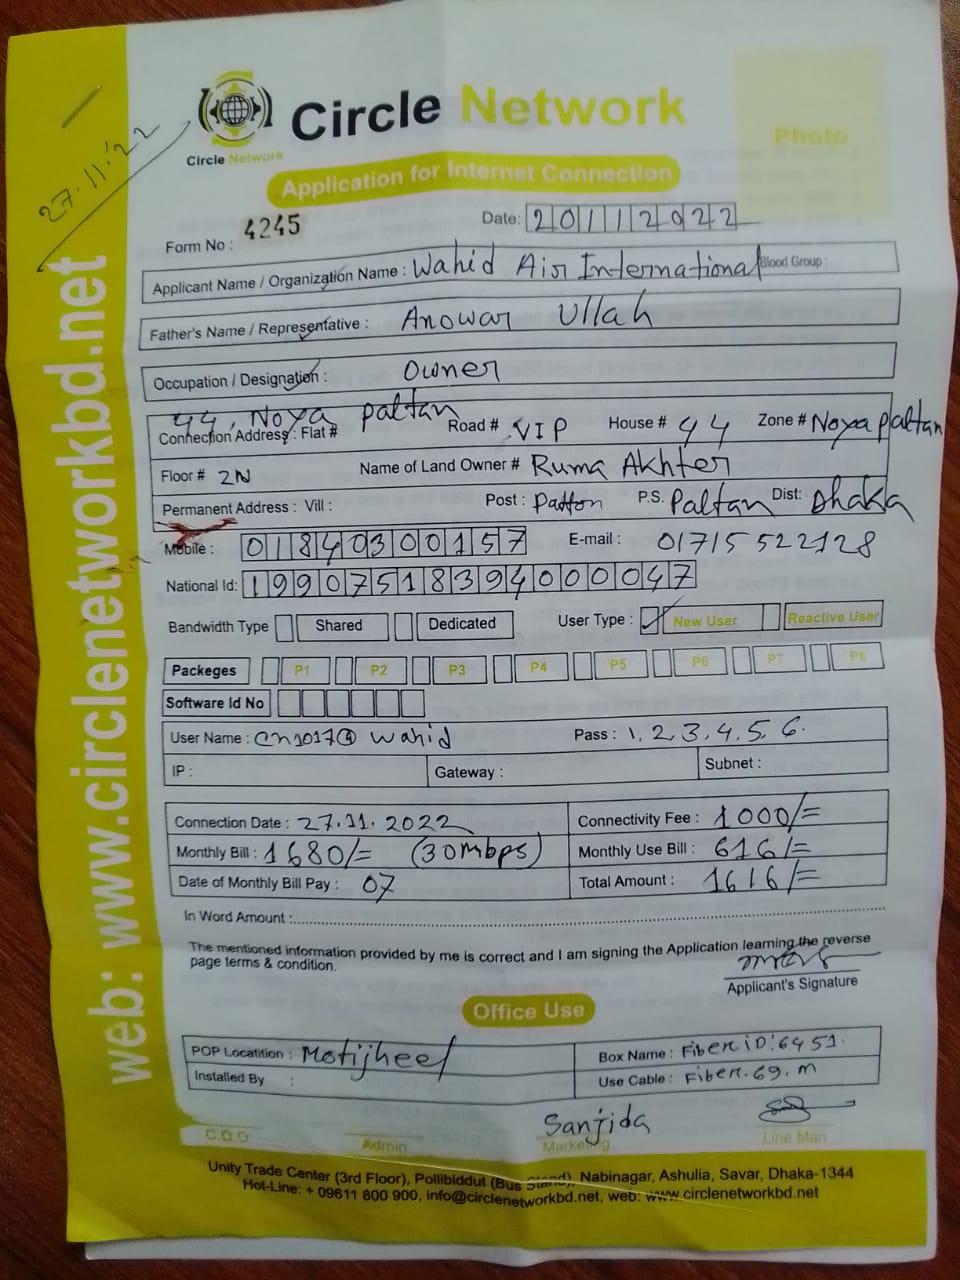 27.11.'22
Circle Network
Circle Network
Photo
Application for Internet Connection
Form No : 4245
Date: 20112022
Applicant Name / Organization Name : Wahid Air International Blood Group :
Father's Name / Representative : Anowar Ullah
Occupation / Designation : Owner
44, Noya paltan
Connection Address : Flat # Road # VIP House # 44 Zone # Noya paltan
Floor # 2N Name of Land Owner # Ruma Akhter
Permanent Address : Vill : Post : Paltan P.S. Paltan Dist: Dhaka
Mobile : 01840300157 E-mail : 01715522128
National Id: 19907518394000047
Bandwidth Type Shared Dedicated User Type : New User Reactive User
Packeges P1 P2 P3 P4 P5 P6 P7 P8
Software Id No
User Name : Wahid Pass : 1,2,3,4,5,6.
IP : Gateway : Subnet :
Connection Date : 27.11.2022 Connectivity Fee : 1000/=
Monthly Bill : 1680/= (30mbps) Monthly Use Bill : 616/=
Date of Monthly Bill Pay : 07 Total Amount : 1616/=
In Word Amount :
The mentioned information provided by me is correct and I am signing the Application learning the reverse
page terms & condition.
Applicant's Signature
Office Use
POP Locatition : Motijheel Box Name : Fiber iD:6451.
Installed By : Use Cable : Fiber.69.m
Sanjida
C.O.O Admin Marketing Line Man
Unity Trade Center (3rd Floor), Pollibiddut (Bus Stand), Nabinagar, Ashulia, Savar, Dhaka-1344
Hot-Line: + 09611 800 900, info@circlenetworkbd.net, web: www.circlenetworkbd.net
web: www.circlenetworkbd.net